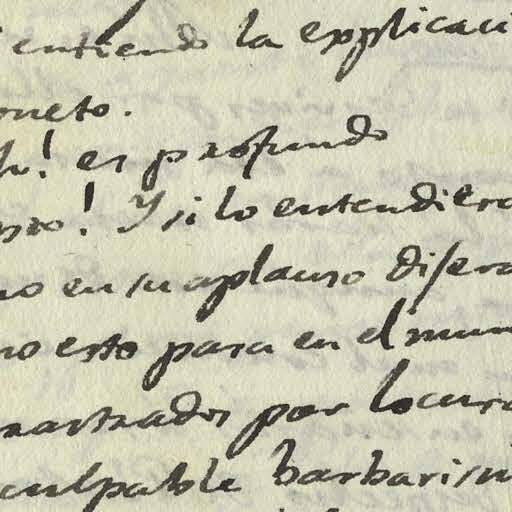 entiendo la explicaci
oneto.
h! es profundo
nso! Y si lo entendiera
no en su aplauso disera
no esto pasa en el mun
rastrados por locura
culpable barbarism